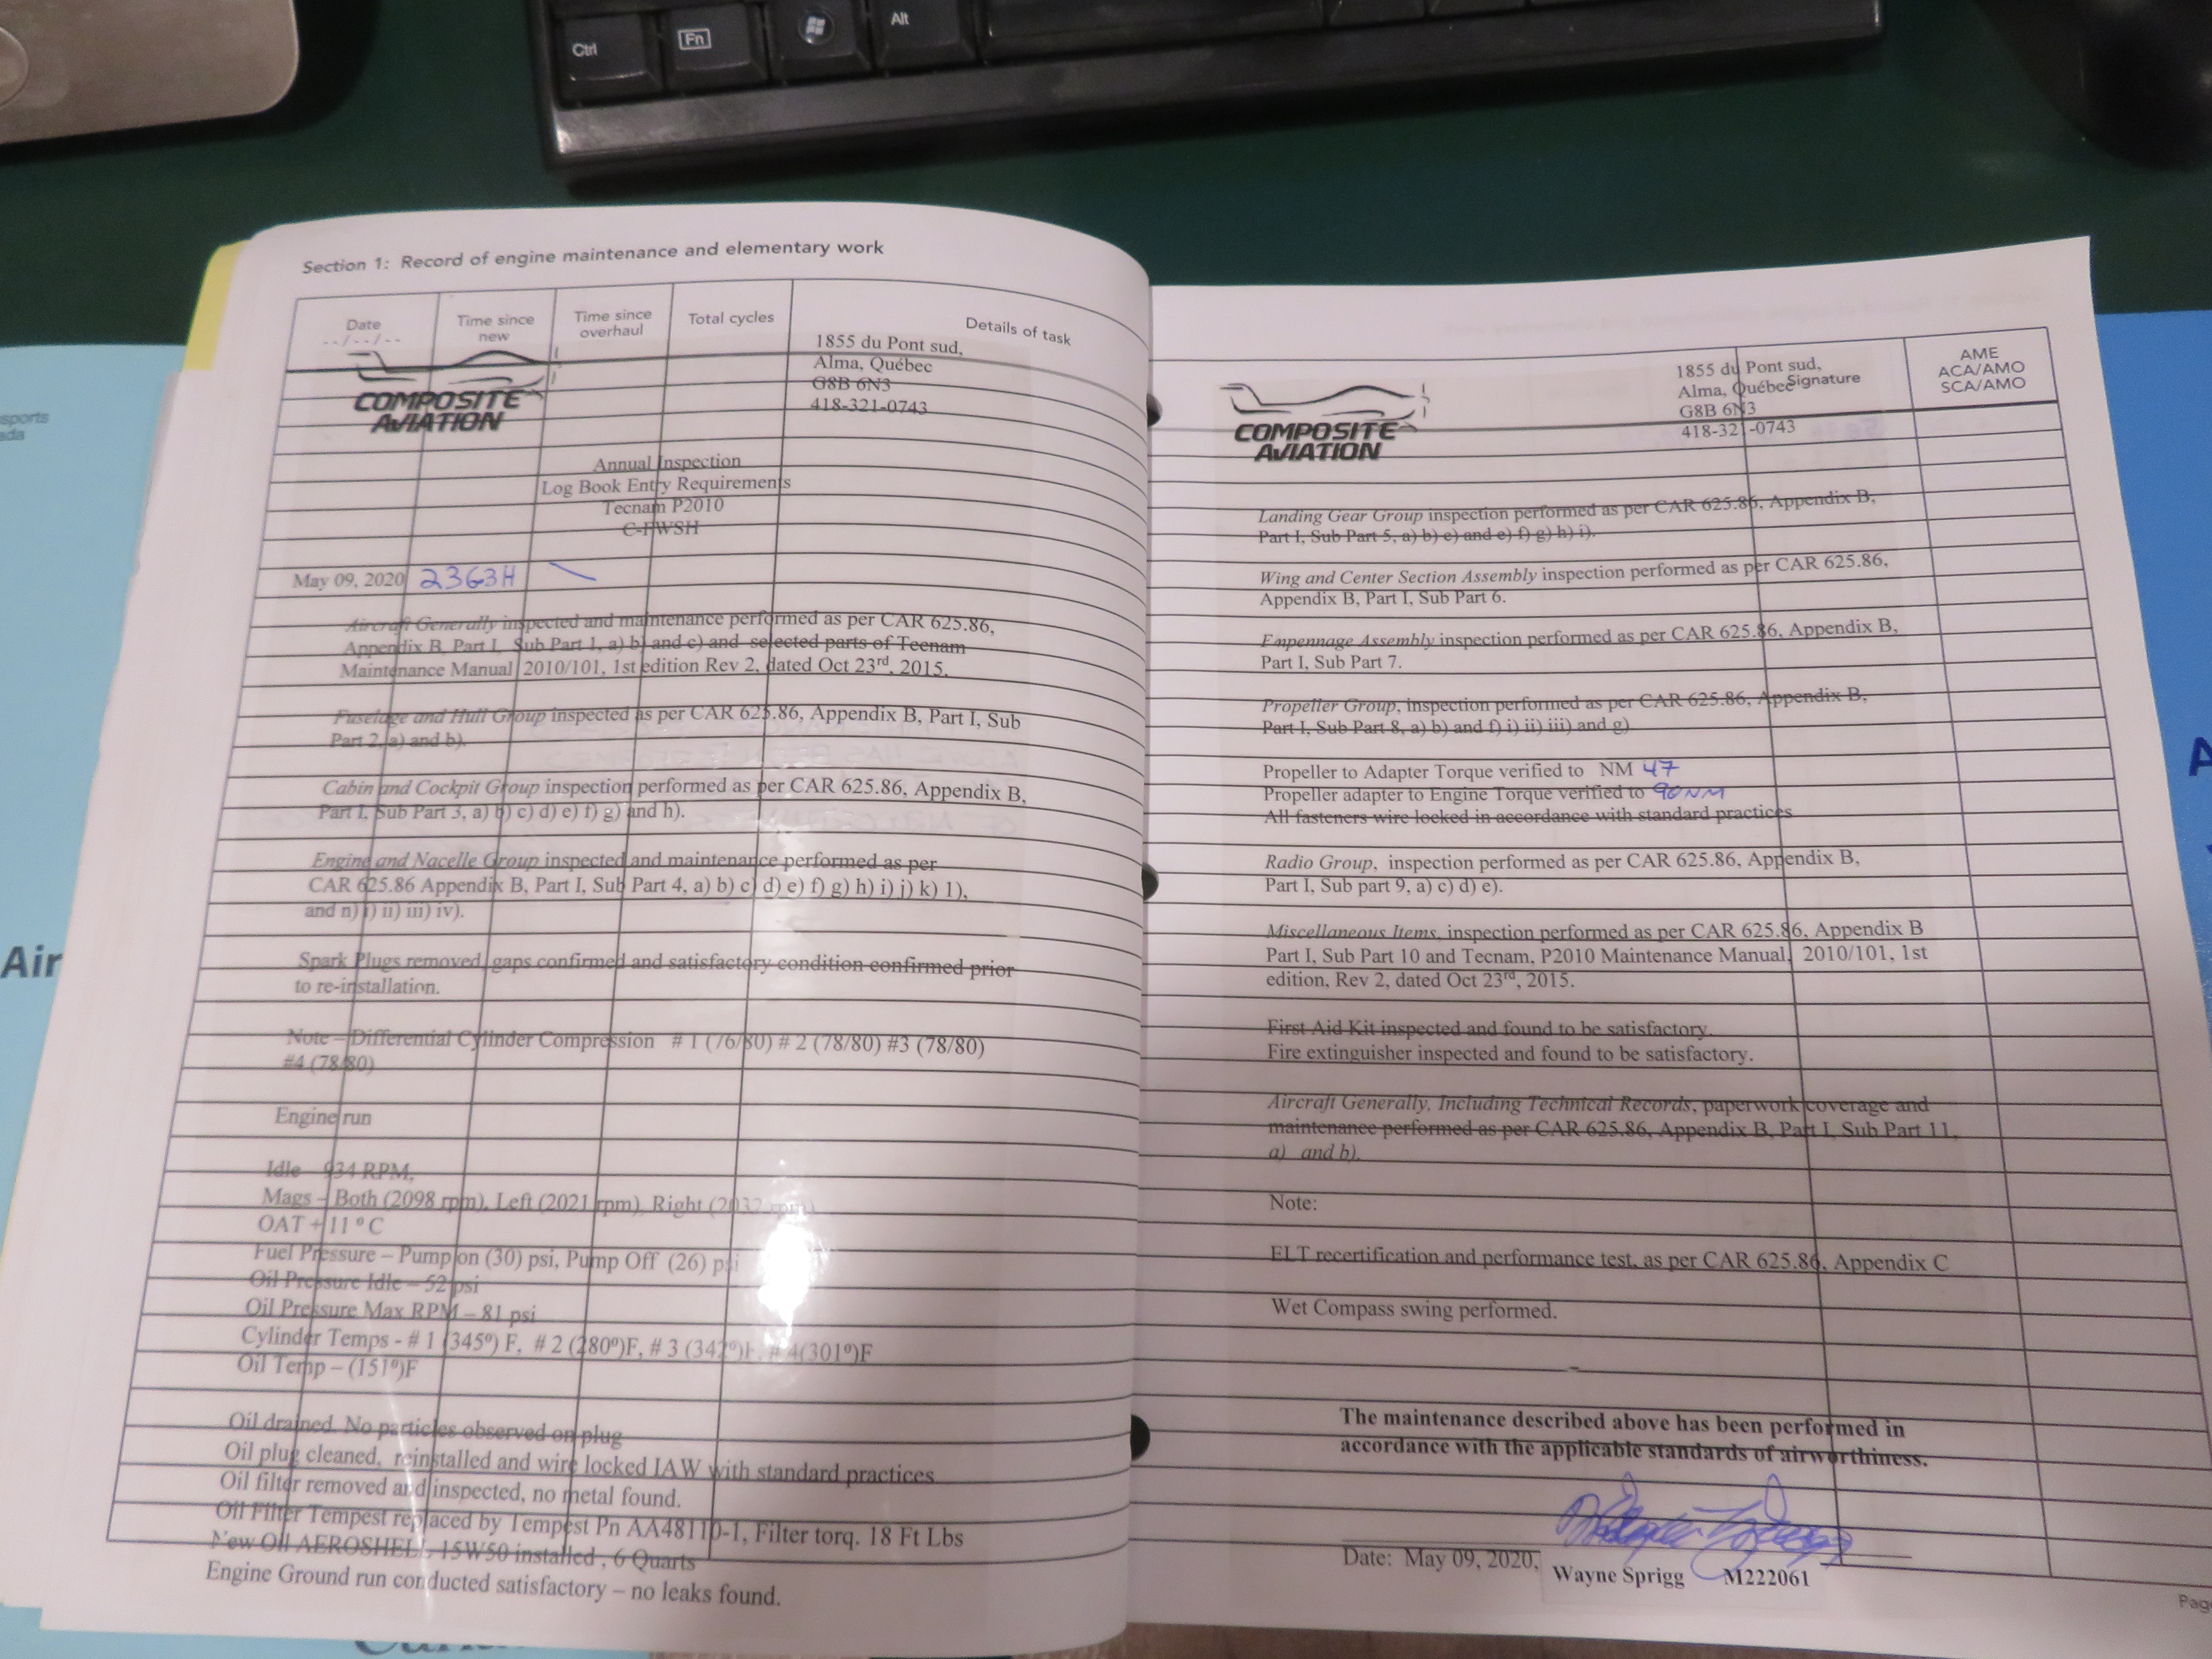 Ctrl
Fn
Alt
Section 1: Record of engine maintenance and elementary work
Date
--/--/--
Time since
new
Time since
overhaul
Total cycles
Details of task
COMPOSITE
AVIATION
1855 du Pont sud,
Alma, Québec
G8B 6N3
418-321-0743
Annual Inspection
Log Book Entry Requirements
Tecnam P2010
C-FWSH
May 09, 2020
Aircraft Generally inspected and maintenance performed as per CAR 625.86,
Appendix B, Part I, Sub Part 1, a) b) and c) and selected parts of Tecnam
Maintenance Manual 2010/101, 1st edition Rev 2, dated Oct 23rd, 2015.
Fuselage and Hull Group inspected as per CAR 625.86, Appendix B, Part I, Sub
Part 2, a) and b).
Cabin and Cockpit Group inspection performed as per CAR 625.86, Appendix B,
Part I, Sub Part 3, a) b) c) d) e) f) g) and h).
Engine and Nacelle Group inspected and maintenance performed as per
CAR 625.86 Appendix B, Part I, Sub Part 4, a) b) c) d) e) f) g) h) i) j) k) l),
and n) i) ii) iii) iv).
Spark Plugs removed, gaps confirmed and satisfactory condition confirmed prior
to re-installation.
Note – Differential Cylinder Compression # 1 (76/80) # 2 (78/80) #3 (78/80)
#4 (78/80)
Engine run
Idle – 934 RPM,
Mags – Both (2098 rpm), Left (2021 rpm), Right (2032 rpm)
OAT + 11 º C
Fuel Pressure – Pump on (30) psi, Pump Off (26) psi
Oil Pressure Idle – 52 psi
Oil Pressure Max RPM – 81 psi
Cylinder Temps - # 1 (345º) F, # 2 (280º)F, # 3 (342º)F, # 4(301º)F
Oil Temp – (151º)F
Oil drained. No particles observed on plug
Oil plug cleaned, reinstalled and wire locked IAW with standard practices
Oil filter removed and inspected, no metal found.
Oil Filter Tempest replaced by Tempest Pn AA48110-1, Filter torq. 18 Ft Lbs
New Oil AEROSHELL 15W50 installed , 6 Quarts
Engine Ground run conducted satisfactory – no leaks found.
Signature
AME
ACA/AMO
SCA/AMO
COMPOSITE
AVIATION
1855 du Pont sud,
Alma, Québec
G8B 6N3
418-321-0743
Landing Gear Group inspection performed as per CAR 625.86, Appendix B,
Part I, Sub Part 5, a) b) c) and e) f) g) h) i).
Wing and Center Section Assembly inspection performed as per CAR 625.86,
Appendix B, Part I, Sub Part 6.
Empennage Assembly inspection performed as per CAR 625.86, Appendix B,
Part I, Sub Part 7.
Propeller Group, inspection performed as per CAR 625.86, Appendix B,
Part I, Sub Part 8, a) b) and f) i) ii) iii) and g)
Propeller to Adapter Torque verified to NM 47
Propeller adapter to Engine Torque verified to 90NM
All fasteners wire locked in accordance with standard practices
Radio Group, inspection performed as per CAR 625.86, Appendix B,
Part I, Sub part 9, a) c) d) e).
Miscellaneous Items, inspection performed as per CAR 625.86, Appendix B
Part I, Sub Part 10 and Tecnam, P2010 Maintenance Manual, 2010/101, 1st
edition, Rev 2, dated Oct 23rd, 2015.
First Aid Kit inspected and found to be satisfactory.
Fire extinguisher inspected and found to be satisfactory.
Aircraft Generally, Including Technical Records, paperwork coverage and
maintenance performed as per CAR 625.86, Appendix B, Part I, Sub Part 11,
a) and b).
Note:
ELT recertification and performance test, as per CAR 625.86, Appendix C
Wet Compass swing performed.
The maintenance described above has been performed in
accordance with the applicable standards of airworthiness.
Date: May 09, 2020,
Wayne Sprigg M222061
Air